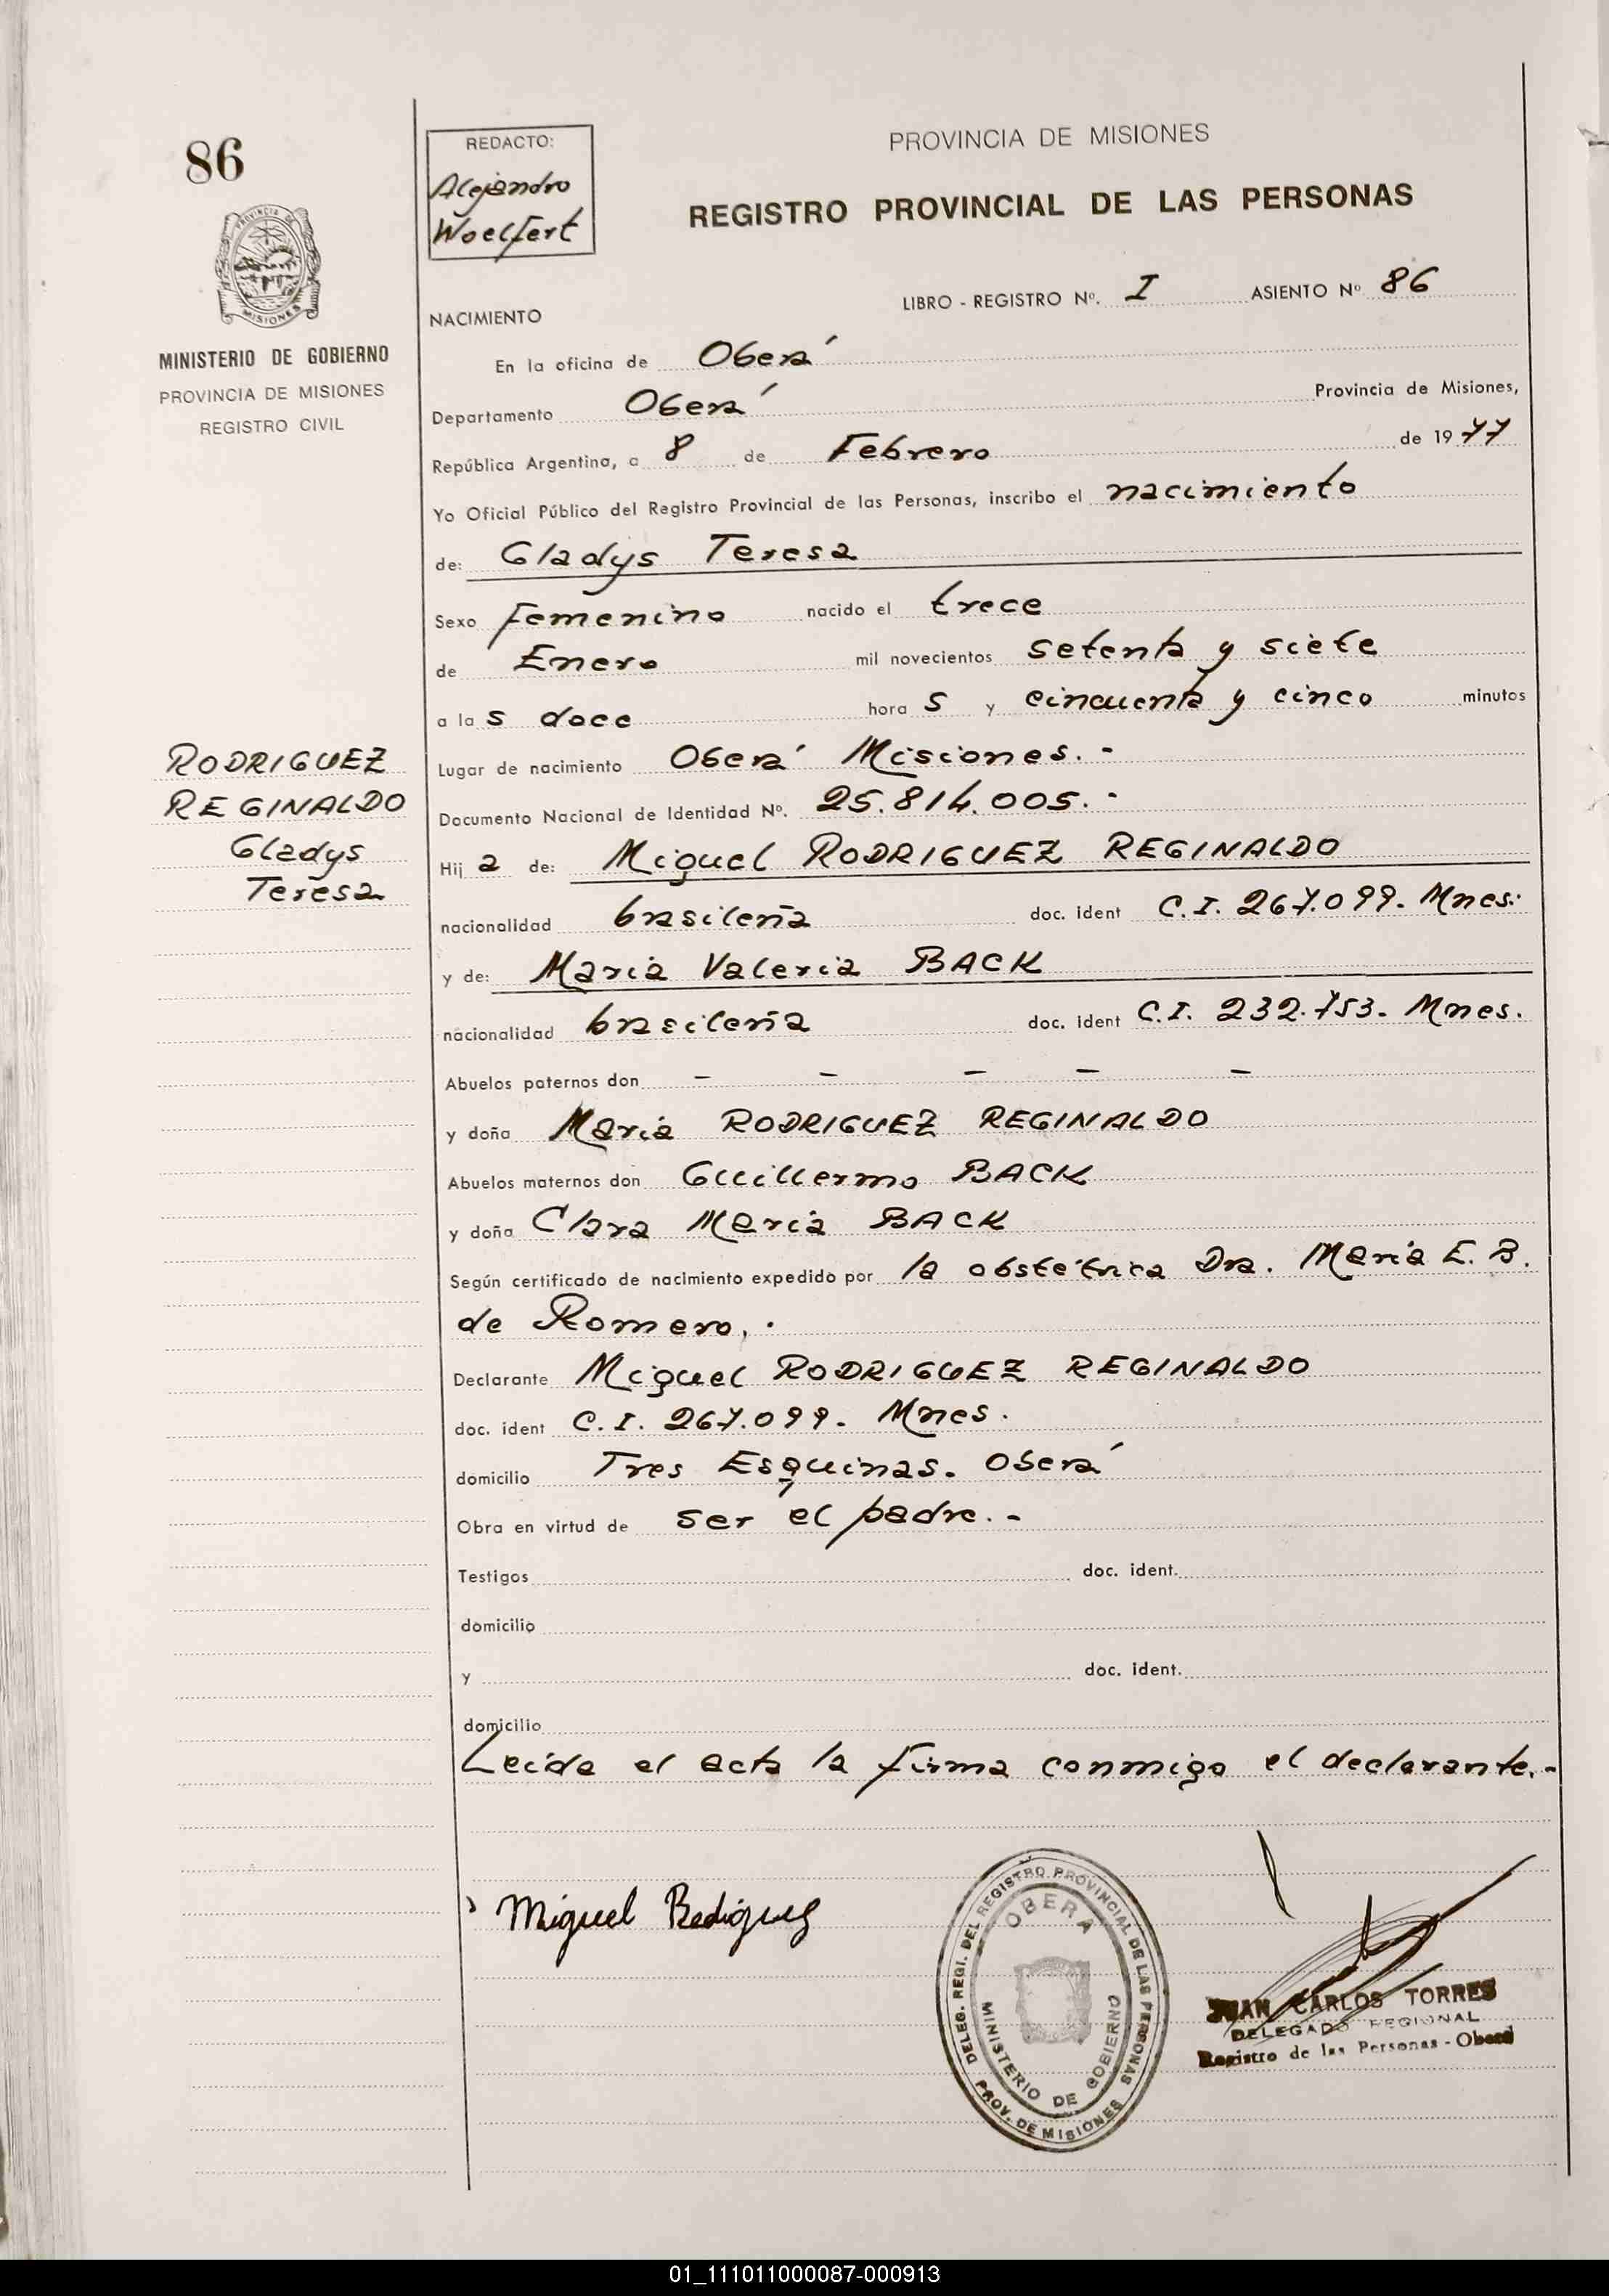 86
REDACTO:
Alejandro
Woelfert
PROVINCIA DE MISIONES
REGISTRO PROVINCIAL DE LAS PERSONAS
PROVINCIA DE
MISIONES
MINISTERIO DE GOBIERNO
PROVINCIA DE MISIONES
REGISTRO CIVIL
NACIMIENTO
LIBRO - REGISTRO Nº. I ASIENTO Nº 86
En la oficina de Oberá
Departamento Oberá Provincia de Misiones,
República Argentina, a 8 de Febrero de 1977
Yo Oficial Público del Registro Provincial de las Personas, inscribo el nacimiento
de: Gladys Teresa
Sexo femenino nacido el trece
de Enero mil novecientos setenta y siete
a las doce horas y cincuenta y cinco minutos
Lugar de nacimiento Oberá Misiones.-
Documento Nacional de Identidad Nº. 25.814.005.-
RODRIGUEZ
REGINALDO
Gladys
Teresa
Hija de: Miguel RODRIGUEZ REGINALDO
nacionalidad brasileña doc. ident C.I. 267.099. Mnes.
y de: Maria Valeria BACK
nacionalidad brasileña doc. ident C.I. 232.753. Mnes.
Abuelos paternos don - - - - -
y doña Maria RODRIGUEZ REGINALDO
Abuelos maternos don Guillermo BACK
y doña Clara Maria BACK
Según certificado de nacimiento expedido por la obstétrica Dra. Maria E. B.
de Romero.-
Declarante Miguel RODRIGUEZ REGINALDO
doc. ident C.I. 267.099. Mnes.
domicilio Tres Esquinas. Oberá
Obra en virtud de ser el padre.-
Testigos doc. ident.
domicilio
y doc. ident.
domicilio
Leida el acta la firma conmigo el declarante.-
Miguel Rediguez
DELEG. REGI. DEL REGISTRO PROVINCIAL DE LAS PERSONAS
OBERA
MINISTERIO DE GOBIERNO
PROV. DE MISIONES
JUAN CARLOS TORRES
DELEGADO REGIONAL
Registro de las Personas - Oberá
01_111011000087-000913